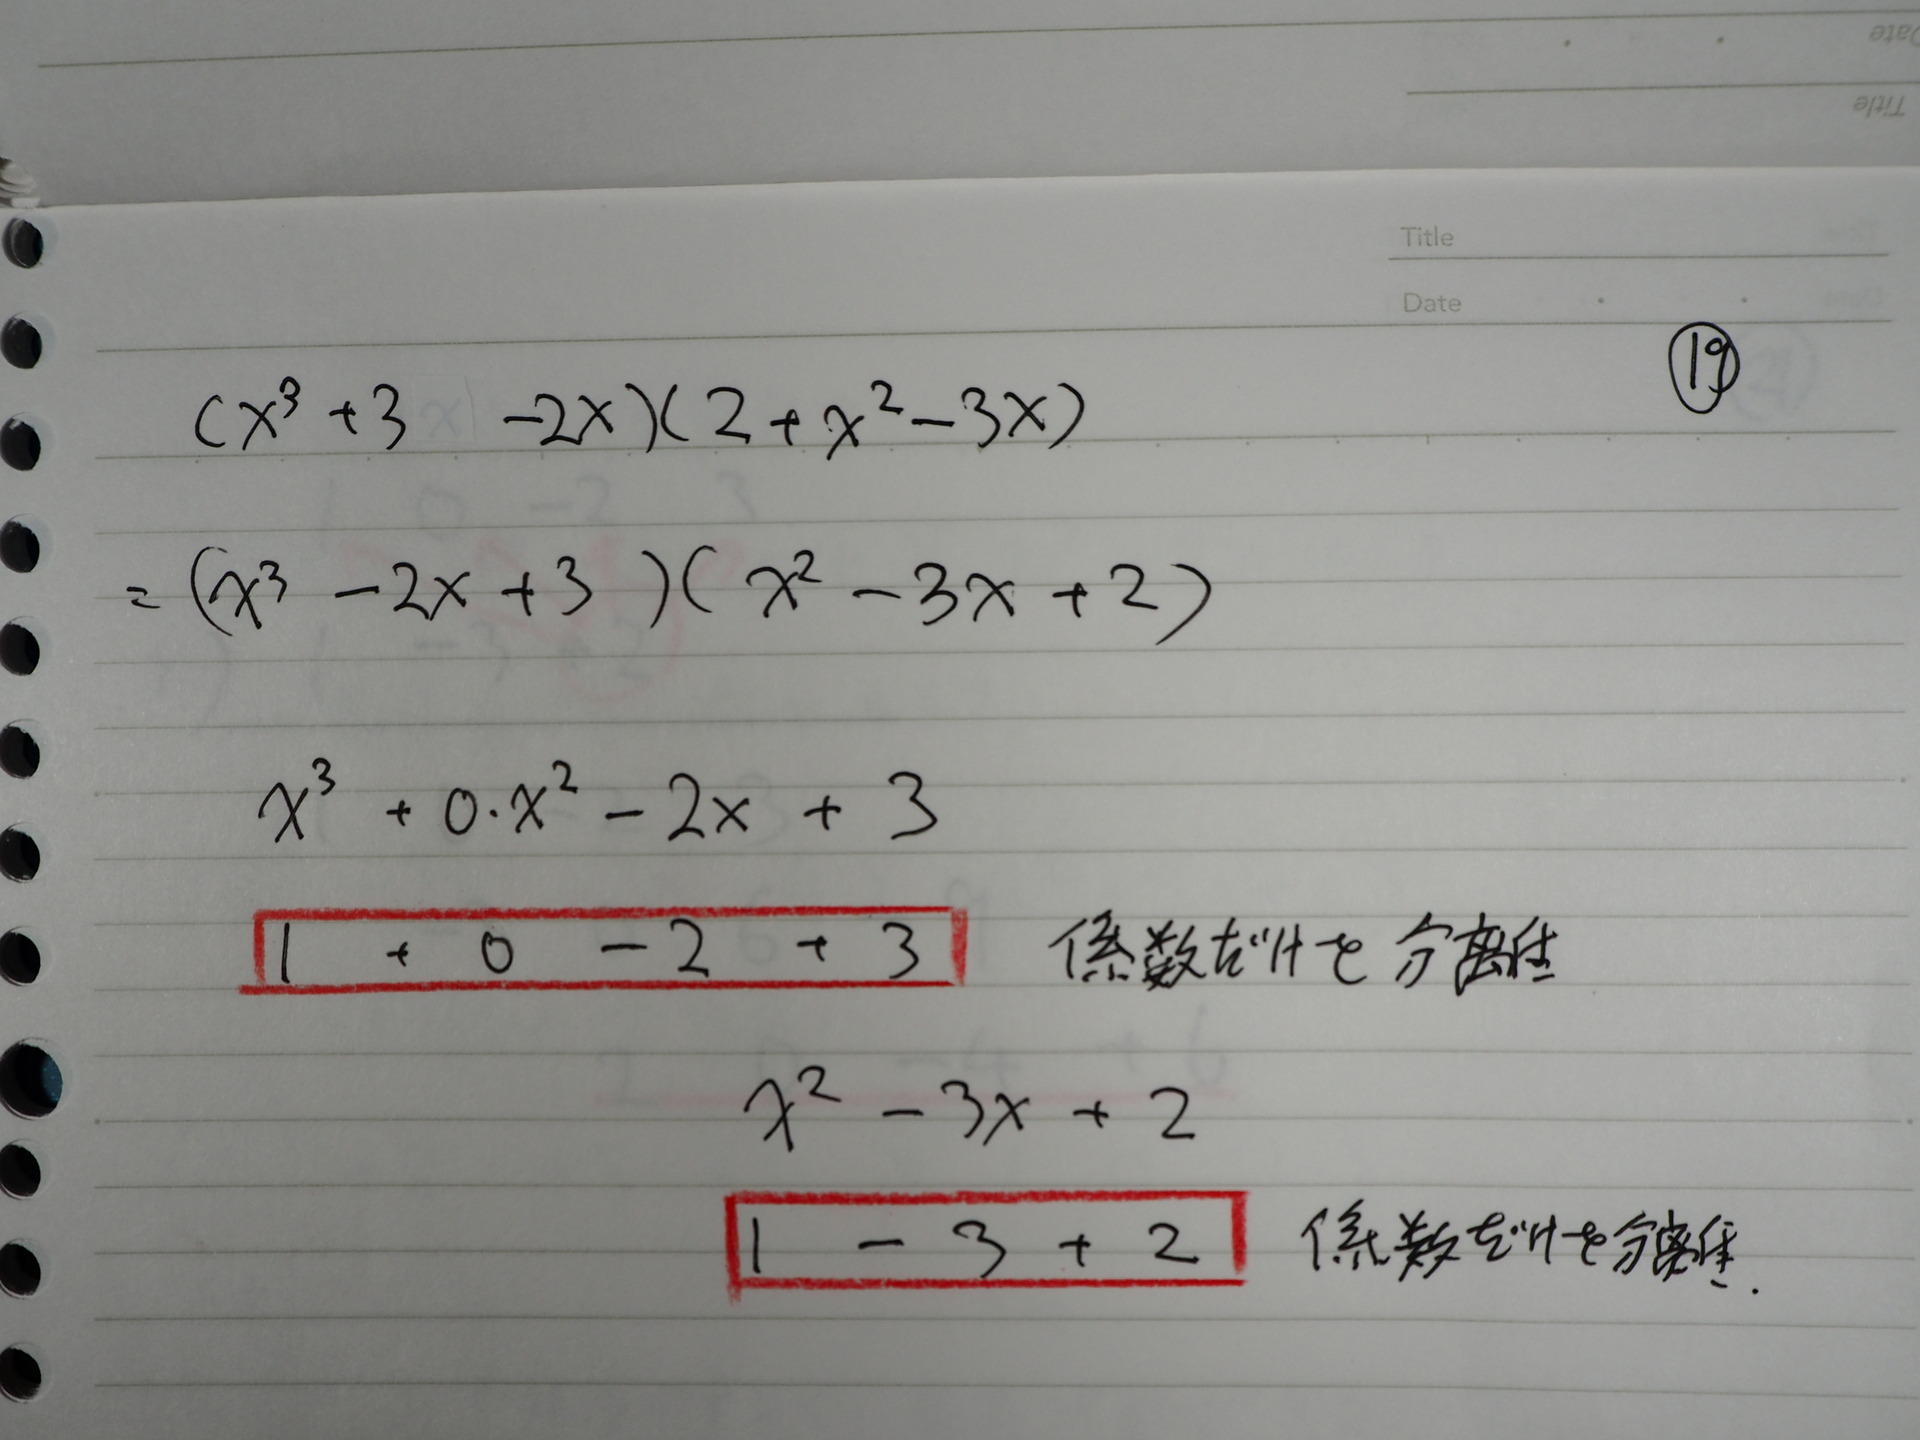 Date
Title
Title
Date
⑲
(x³ +3 -2x)(2+x²-3x)
= (x³ -2x+3)(x² -3x+2)
x³ + 0·x² - 2x + 3
1 + 0 - 2 + 3 係数だけを分離
x² - 3x + 2
1 - 3 + 2 係数だけを分離.